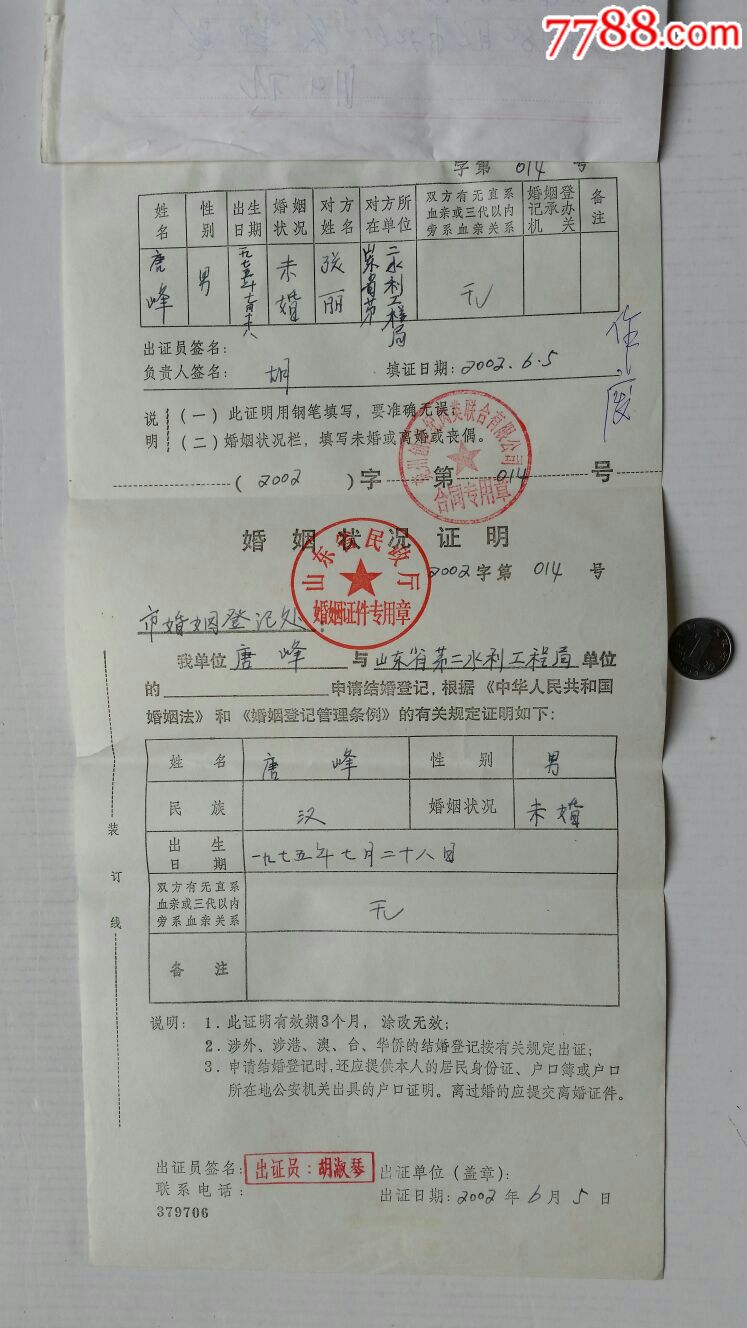 7788.com
字第 014 号
姓名 性别 出生日期 婚姻状况 对方姓名 对方所在单位 双方有无直系血亲或三代以内旁系血亲关系 婚姻登记承办机关 备注
唐峰 男 未婚 张丽 二水利工程局 无
出证员签名：
负责人签名： 胡 填证日期：2002.6.5
作废
说明 (一) 此证明用钢笔填写，要准确无误；
(二) 婚姻状况栏，填写未婚或离婚或丧偶。
合同专用章
( 2002 ) 字 第 014 号
婚姻状况证明
山东省民政厅
婚姻证件专用章
2002 字第 014 号
市婚姻登记处：
我单位 唐峰 与 山东省第二水利工程局 单位
的 申请结婚登记，根据《中华人民共和国
婚姻法》和《婚姻登记管理条例》的有关规定证明如下：
姓名 唐峰 性别 男
民族 汉 婚姻状况 未婚
出生日期 一九七五年七月二十八日
双方有无直系血亲或三代以内旁系血亲关系 无
备注
装订线
说明：1．此证明有效期3个月，涂改无效；
2．涉外、涉港、澳、台、华侨的结婚登记按有关规定出证；
3．申请结婚登记时，还应提供本人的居民身份证、户口簿或户口
所在地公安机关出具的户口证明。离过婚的应提交离婚证件。
出证员签名： 出证员：胡淑琴 出证单位（盖章）：
联系电话： 出证日期：2002 年 6 月 5 日
379706